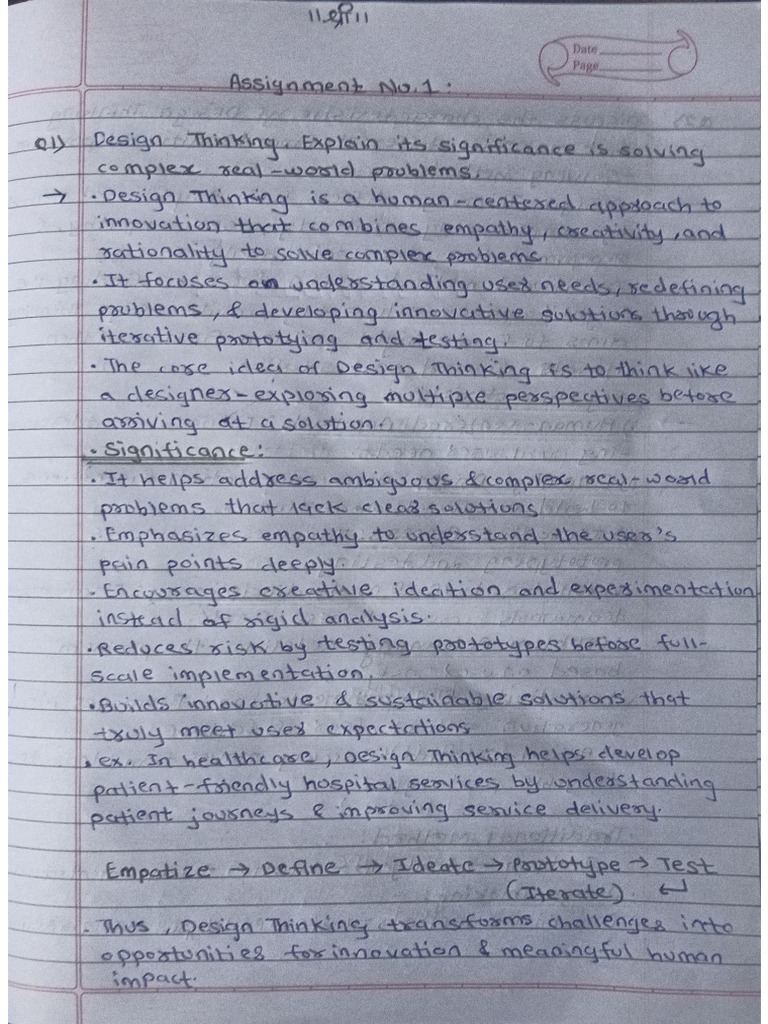 ॥श्री॥
Date
Page
Assignment No.1:
Q1) Design Thinking. Explain its significance is solving
complex real-world problems.
→ • Design Thinking is a human-centered approach to
innovation that combines empathy, creativity, and
rationality to solve complex problems.
• It focuses on understanding user needs, redefining
problems, & developing innovative solutions through
iterative prototying and testing.
• The core idea of Design Thinking is to think like
a designer-exploring multiple perspectives before
arriving at a solution.
• Significance:
• It helps address ambiguous & complex real-world
problems that lack clear solutions
• Emphasizes empathy to understand the user's
pain points deeply.
• Encourages creative ideation and experimentation
instead of rigid analysis.
• Reduces risk by testing prototypes before full-
scale implementation.
• Builds innovative & sustainable solutions that
truly meet user expectations
• ex. In healthcare, Design Thinking helps develop
patient-friendly hospital services by understanding
patient journeys & improving service delivery.
Empatize → Define → Ideate → Prototype → Test
(Iterate). ↵
• Thus, Design Thinking transforms challenges into
opportunities for innovation & meaningful human
impact.